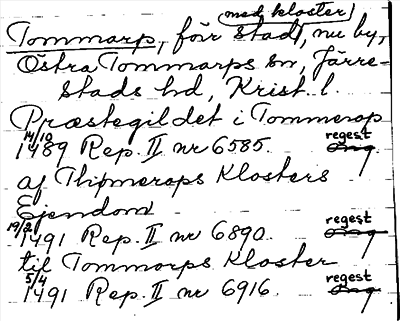 med kloster
Tommarp, förr stad, nu by,
Östra Tommarps sn, Järre-
stads hd, Krist. l.
Præstegildet i Tommerop
14/10 1489 Rep. II nr 6585. regest
af Thomerops Klosters
Ejendom
19/2 1491 Rep. II nr 6890. regest
til Tommarps Kloster
5/4 1491 Rep. II nr 6916 regest